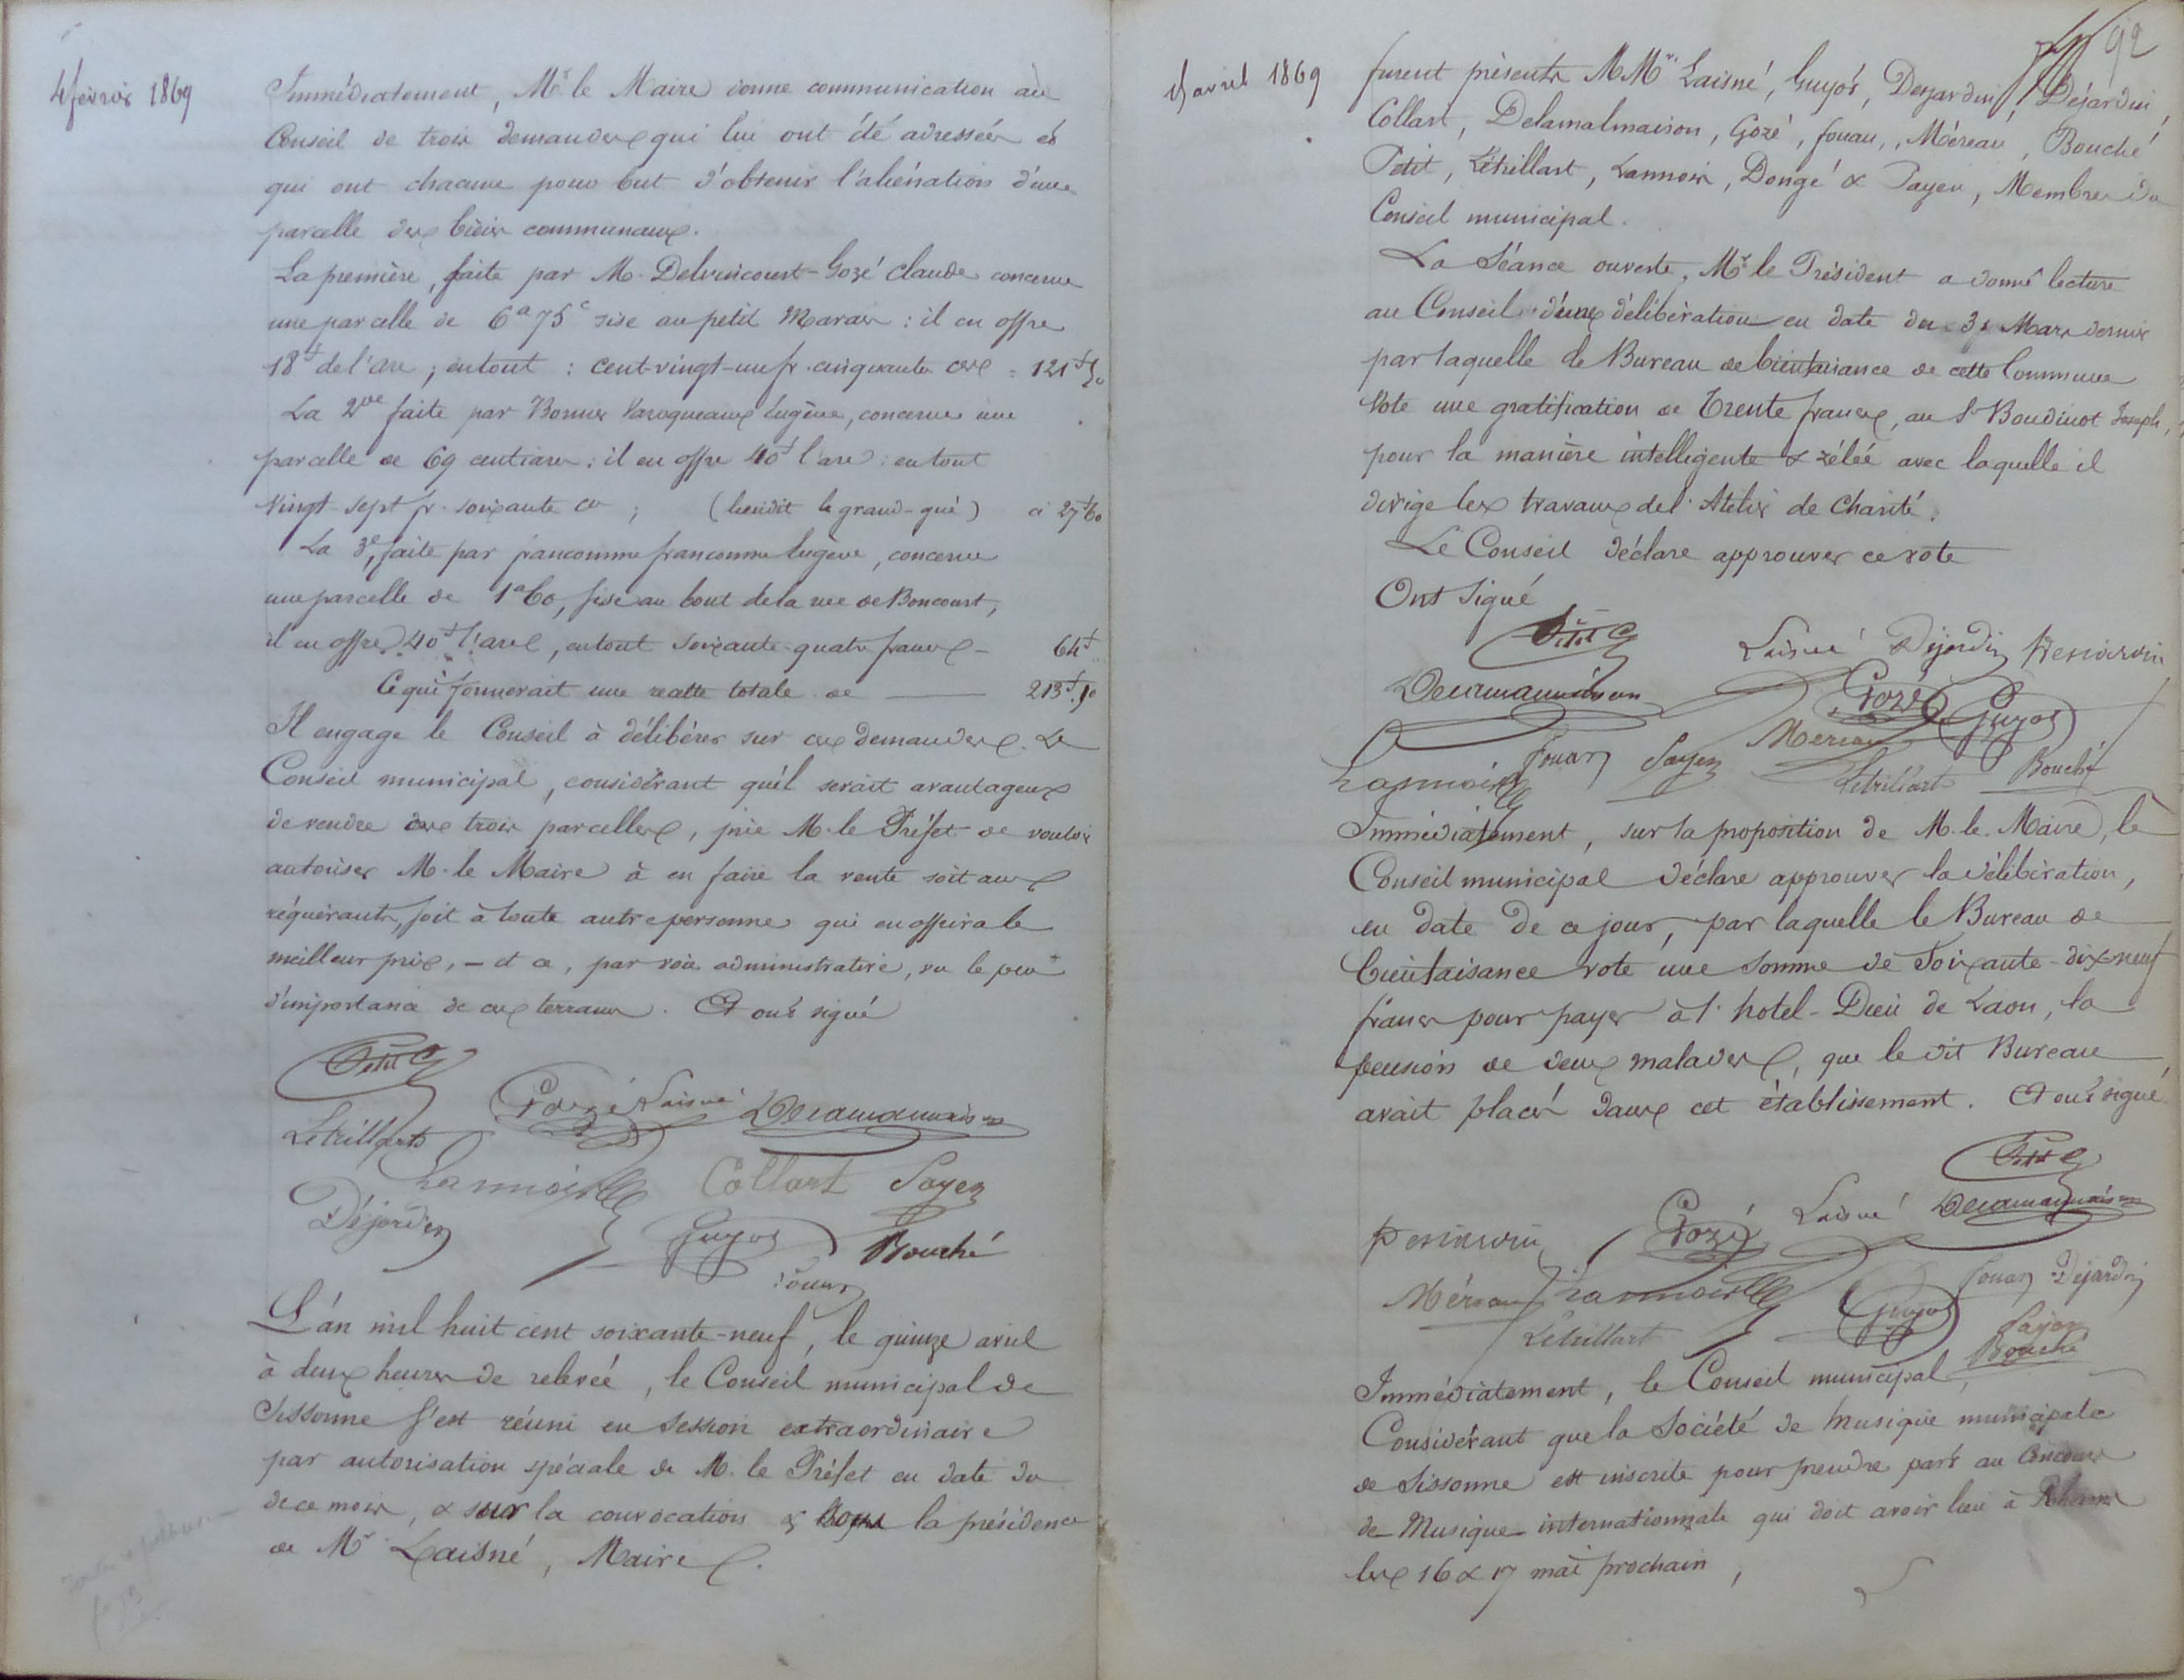 4 février 1869
Immédiatement, Mr. le Maire donne communication au
Conseil de trois demandes qui lui ont été adressées et
qui ont chacune pour but d'obtenir l'aliénation d'une
parcelle des biens communaux.
La première, faite par M. Delvincourt-Gozé Claude concerne
une parcelle de 6a 75c sise au petit Marais : il en offre
18f de l'are ; en tout : cent-vingt-un fr. cinquante ces = 121f 50
La 2me faite par Bonnier Varoqueaux Eugène, concerne une
parcelle de 69 centiares : il en offre 40f l'are : en tout
vingt-sept fr. soixante ces ; (lieudit le grand-gué) ci 27f 60
La 3e, faite par francomme francomme Eugène, concerne
une parcelle de 1a 60, sise au bout de la rue de Boncourt,
il en offre 40f l'are, en tout soixante-quatre francs - 64f
Ce qui formerait une recette totale de 213f.10
Il engage le Conseil à délibérer sur ces demandes. Le
Conseil municipal, considérant qu'il serait avantageux
de vendre ces trois parcelles, prie M. le Préfet de vouloir
autoriser M. le Maire à en faire la vente soit aux
requérants, soit à toute autre personne qui en offrira le
meilleur prix, - et ce, par voie administrative, vu le peu
d'importance de ces terrains. Et ont signé
Petit
Gozé Laisné Delamalmaison
Létrillart
Lannois Collart Payen
Déjardin
Guyot Bouché
fouan
L'an mil huit cent soixante-neuf, le quinze avril
à deux heures de relevée, le Conseil municipal de
Sissonne s'est réuni en session extraordinaire
par autorisation spéciale de M. le Préfet en date du
de ce mois, & sur la convocation & sous la présidence
de Mr. Laisné, Maire.
92
15 avril 1869
furent présents MMrs Laisné, Guyot, Desjardin, Déjardin,
Collart, Delamalmaison, Gozé, fouan, Méreau, Bouché
Petit, Létrillart, Lannois, Dongé & Payen, Membres du
Conseil municipal.
La Séance ouverte, Mr le Président a donné lecture
au Conseil d'une délibération en date du 31 Mars dernier
par laquelle le Bureau de bienfaisance de cette Commune
vote une gratification de trente francs, au Sr Boudinot Joseph,
pour la manière intelligente & zélée avec laquelle il
dirige les travaux de l'Atelier de Charité.
Le Conseil déclare approuver ce vote
Ont signé
Petit
Laisné Déjardin Desjardin
Delamalmaison Gozé Guyot
Lannois fouan Payen Méreau Létrillart Bouché
Immédiatement, sur la proposition de M. le Maire, le
Conseil municipal déclare approuver la délibération,
en date de ce jour, par laquelle le Bureau de
bienfaisance vote une somme de Soixante-dix-neuf
francs pour payer à l'hotel-Dieu de Laon, la
pension de deux malades, que le dit Bureau
avait placés dans cet établissement. Et ont signé
Petit
Desjardin Gozé Laisné Delamalmaison
Méreau Lannois Guyot fouan Déjardin
Létrillart Payen
Bouché
Immédiatement, le Conseil municipal,
Considérant que la Société de musique municipale
de Sissonne est inscrite pour prendre part au Concours
de Musique internationale qui doit avoir lieu à Rheims
les 16 & 17 mai prochain,